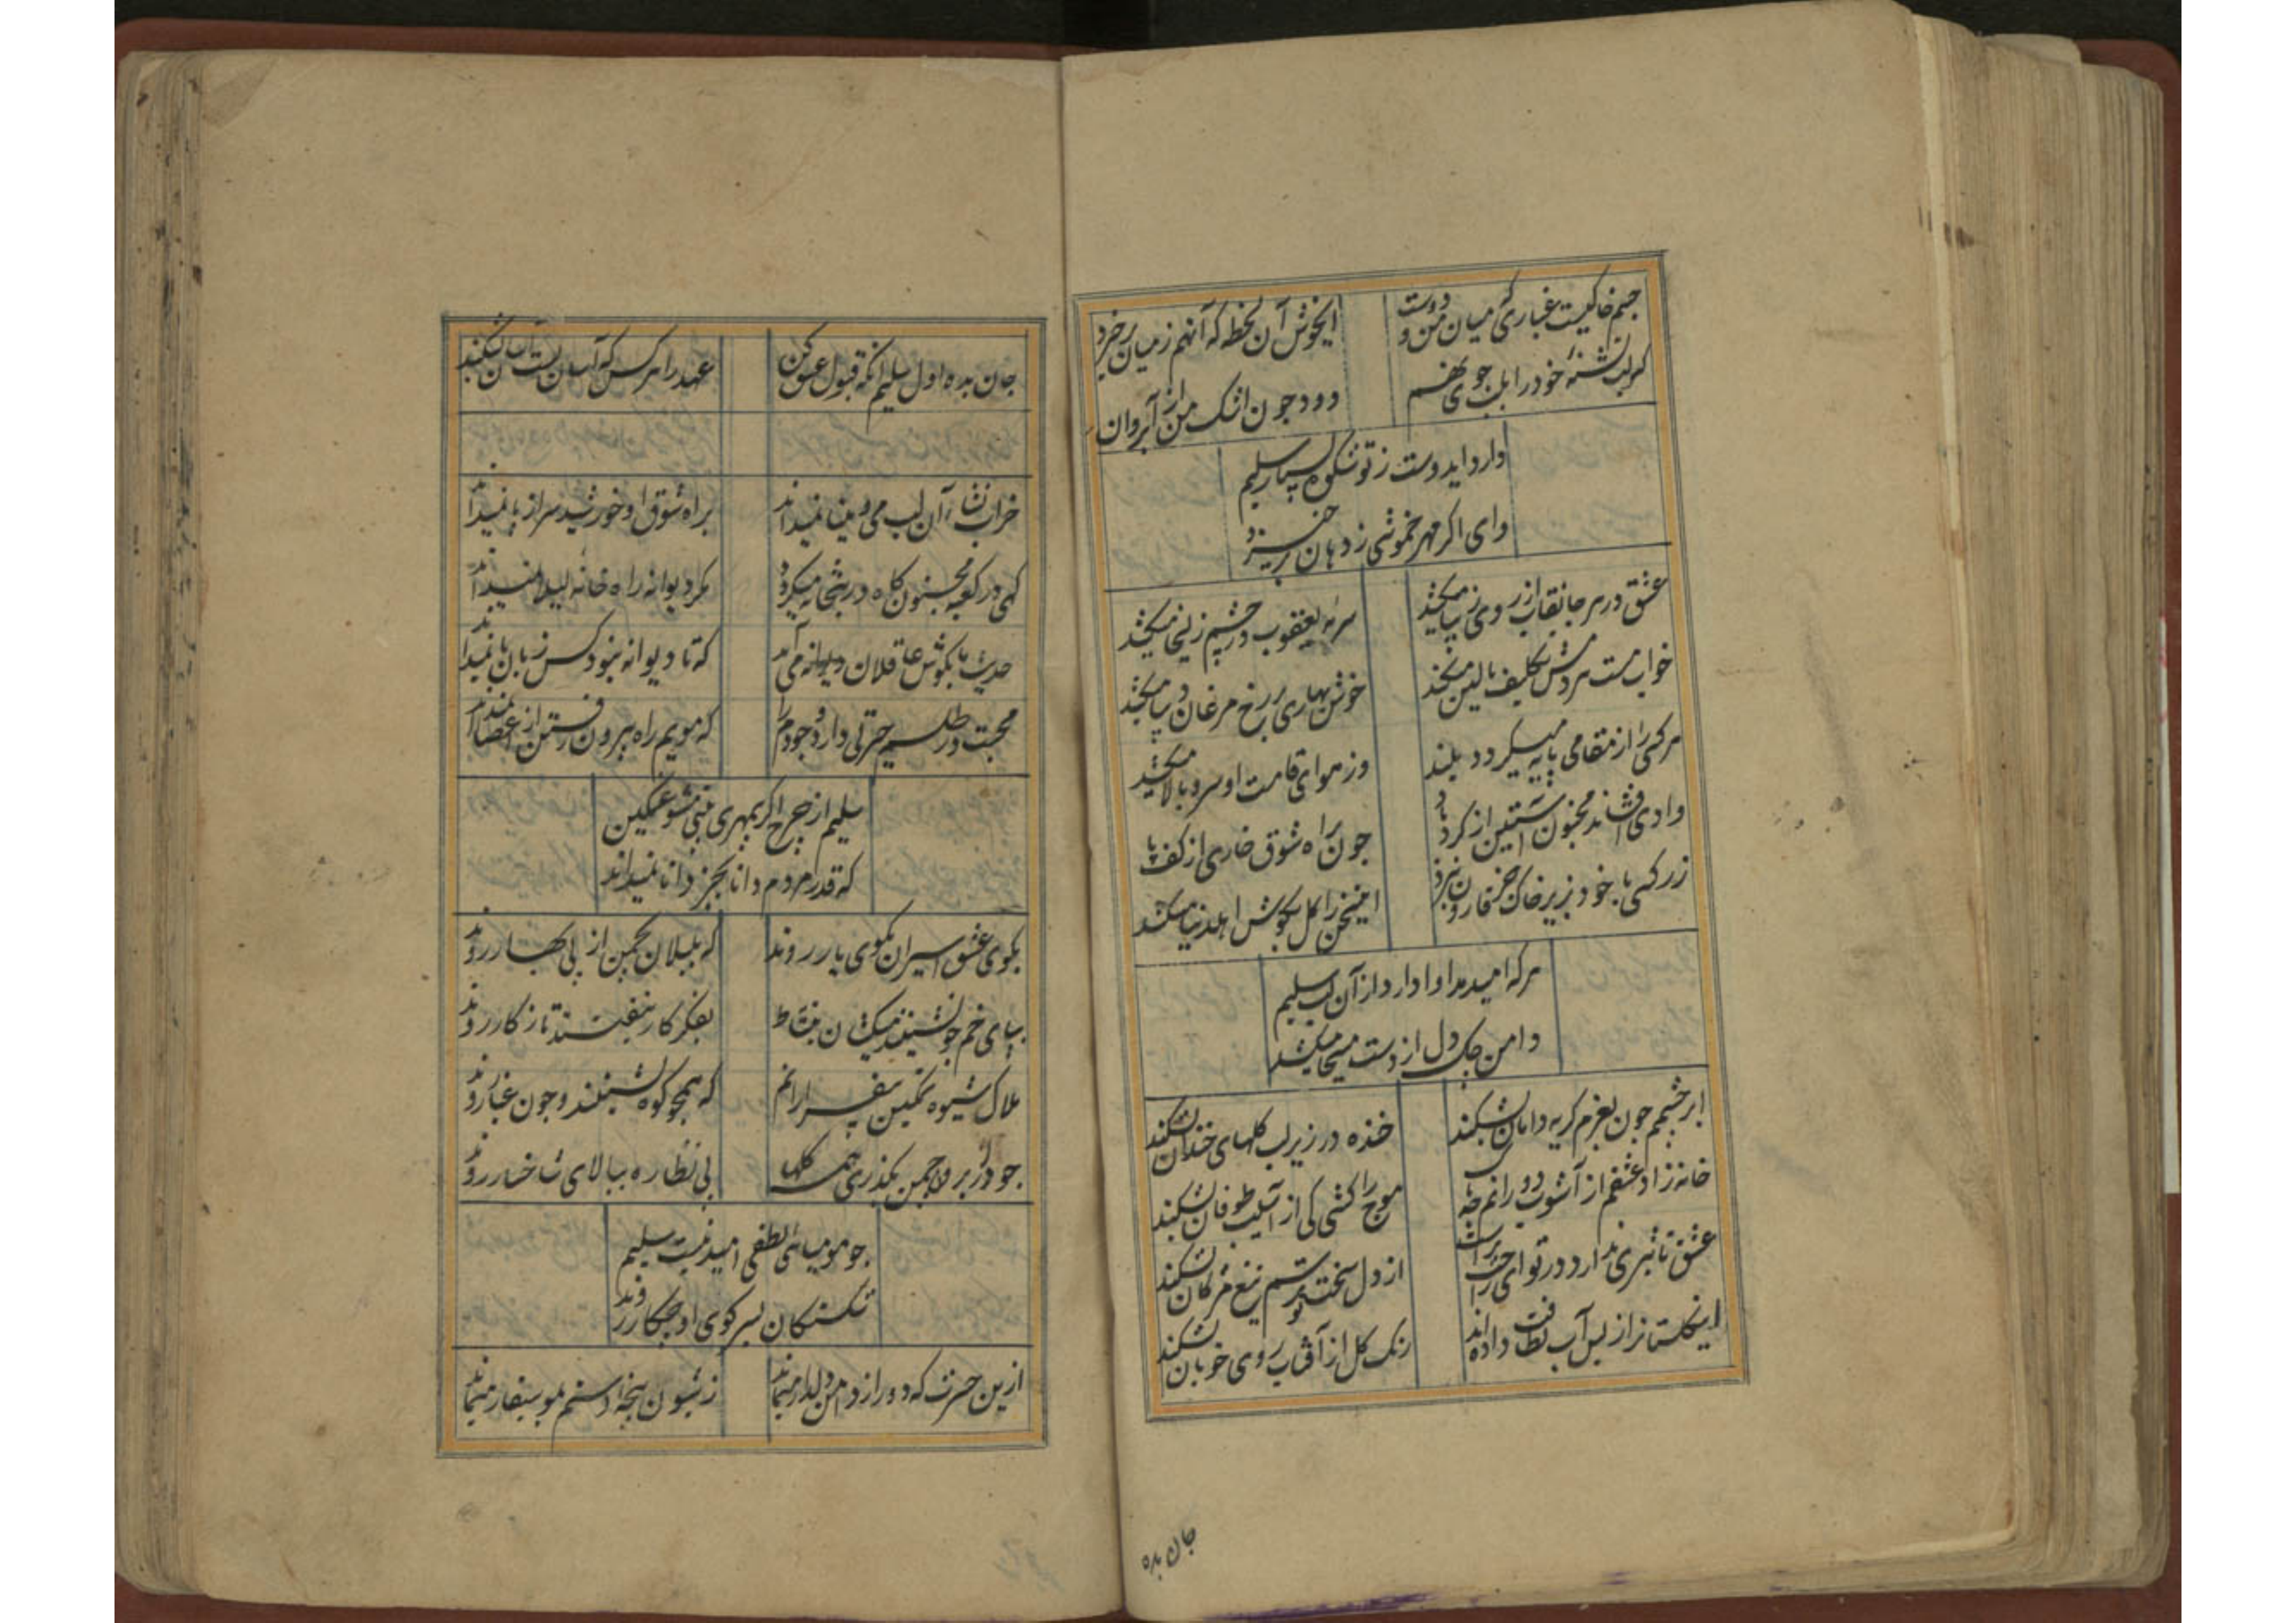 جسم خاکیست غباری که میان من و دوست
ایخوش آن لحظه که آنهم ز میان برخیزد
کر لب تشنهٔ خود را بلب جوی نهم
رود جون اشک من از آب روان
دارد ایدوست ز تو شکوه بسیار سلیم
وای اکر مهر خموشی ز دهان برخیزد
عشق در هر جا نقاب از روی زیبا میکشد
سرمهٔ یعقوب در چشم زلیخا میکشد
خواب مست سر و تکلیف بالین میکند
خوش بهاری بر رخ مرغان میکشد
هر کسی را از مقامی پایه میکردد بلند
وز هوای قامت او سرو بالا میکشد
وادی افشاند مجنون آستین از کرد باد
جون براه شوق خاری از کف پا
زر کسی با خود بزیر خاک جز قارون نبرد
این سخن را کل بکوش اهل دنیا میکشد
هر که امید مداوا دارد از آن لب سلیم
دامن جاک دل از دست مسیحا میکشد
ابر چشمم جون بعزم کریه دامان بشکند
خنده در زیر لب کلهای خندان بشکند
خانه زاد عشقم از آشوب دورانم چه باک
موج را کشتی کی از آسیب طوفان بشکند
عشق تاثیری ندارد در تو ای
از دل سخت تو ترسم تیغ مژکان بشکند
این کلستان را ز بس آب لطافت داده اند
رنک کل از آفتاب روی خوبان بشکند
جان بده
جان بده اول سلیم آنکه قبول عشق کن
عهد را هر کس که آسان بست آسان بشکند
خراب نشاء آن لب می و مینا نمیداند
براه شوق او خورشید سر از پا نمیداند
کهی در کعبه مجنون کاه در بتخانه میکردد
مکر دیوانه راه خانه لیلا نمیداند
حدیث ما بکوش عاقلان دیوانه می آید
که تا دیوانه نبود کس زبان ما نمیداند
محبت در طلسم حیرتی دارد وجودم را
که مویم راه بیرون رفتن از اعضا نمیداند
سلیم از چرخ اکر بیمهری بینی مشو غمکین
که قدر مردم دانا بجز دانا نمیداند
بکوی عشق اسیران بکوی یار روند
که بلبلان بچمن از پی بهار روند
بپای خم جو نشینند میکشان نشاط
بفکر کار نیفتند تا ز کار روند
هلاک شیوه تمکین بیقرارانم
که همچو کوه نشینند و جون غبار روند
جو در برون چمن بکذری همه کلها
پی نظاره ببالای شاخسار روند
جو مومیائی لطفی امید نیست سلیم
شکستکان بسر کوی او چکار روند
ازین حسرت که دور از دامن دلدار میماند
ز شیون پنجه ام دستم بموسیقار میماند